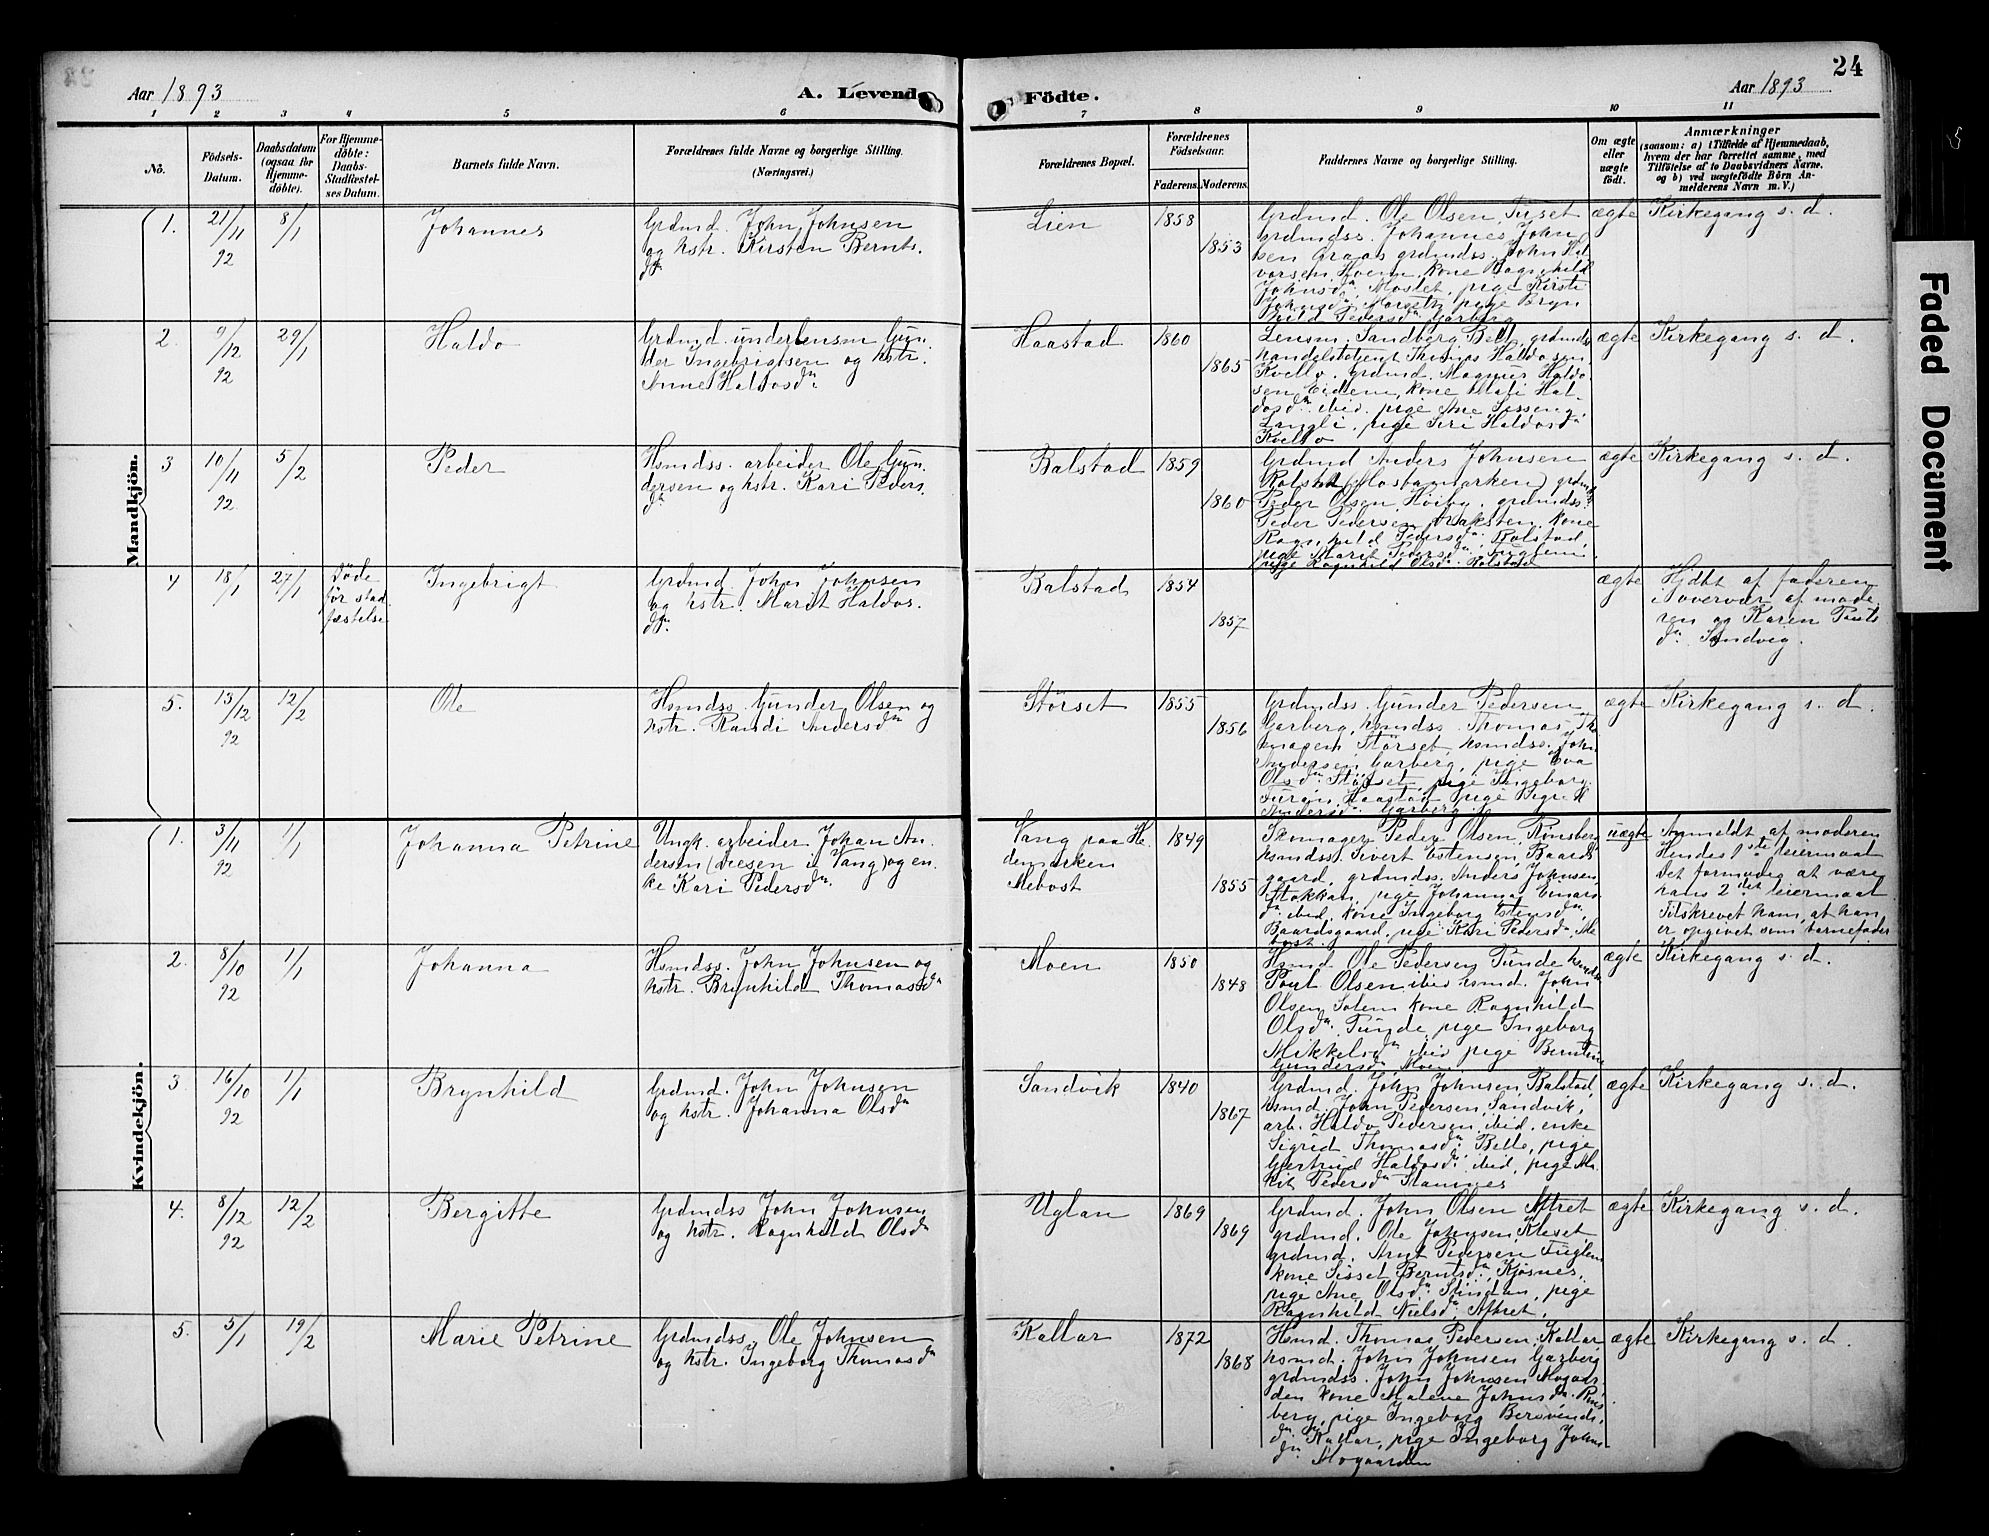 24
Aar 1893
A. Levend
Födte.
Aar 1893
1 2 3 4 5 6 7 8 9 10 11
No.
Födsels-
Datum.
Daabsdatum
(ogsaa for
Hjemme-
döbte).
For Hjemme-
döbte:
Daabs-
Stadfæstel-
ses Datum.
Barnets fulde Navn.
Forældrenes fulde Navne og borgerlige Stilling.
(Næringsvei.)
Forældrenes Bopæl.
Forældrenes
Födselsaar.
Faderens. Moderens.
Faddernes Navne og borgerlige Stilling.
Om ægte
eller
uægte
födt.
Anmærkninger
(saasom: a) i Tilfælde af Hjemmedaab,
hvem der har forrettet samme, med
Tilföielse af to Daabsvidners Navne.
og b) ved uægtefödte Börn An-
melderens Navn m. V.)
Mandkjön.
1. 21/11 92 8/1 Johannes
Grdmd. John Johnsen
og hstr. Kirsten Bernts
dr.
Lien 1858 1853
Grdmd. Ole Olsen Tuset
grdmdss. Johannes John
sen Graas grdmdss. John Hal
vorsen Hoem, kone Ragnhild
Johnsdr. Moslet, pige Kirsti
Johnsdr. pige Bryn
hild Pedersdr. Garberg
ægte Kirkegang s. d.
2. 9/12 92 29/1 Haldo
Grdmd. underlensm Gun
der Ingebrigtsen og hstr.
Anne Haldosdr.
Haastad 1860 1865
Lensm. Sandberg Bell, grdmds
handelsbetjent Thomas Haldosen
Kvello. Grdmd. Magnus Haldo
sen Eidem, kone Mali Hal
dosdr. ibid. pige Ane
Langli, pige Siri Haldosdr
Kvello
ægte Kirkegang s. d.
3 10/11 92 5/2 Peder
Hsmdss. arbeider Ole Gun
dersen og hstr. Kari Peders
dr.
Balstad 1859 1860
Grdmd Anders Johnsen
Rolset (Mostamarken) grdmds
Peder Olsen Høiby, grdmdss.
Peder Pedersen kone
Ragnhild Pedersdr. Rolstad,
pige Marit Pedersdr. Fuglem
pige Ragnhild Olsdr. Rolstad
ægte Kirkegang s. d.
4 18/1 27/1 Døde
før stad
fæstelse
Ingebrigt
Grdmd. John Johnsen
og hstr. Marit Haldos.
dr.
Balstad 1854 1857
ægte Hjdbt af faderen
i overvær af mode
ren og Karen Pouls
dr. Sandvig.
5. 13/12 92 12/2 Ole
Hsmdss. Gunder Olsen og
hstr. Randi Andersdr
Størset 1855 1856
Grdmdss. Gunder Pedersen
Garberg, hsmdss. Thomas Th
omasen Størset, hsmdss. John
Andersen Garberg, pige Eva
Olsdr. Størset, pige Ingeborg
Haastad pige
Andersdr. Garberg
ægte Kirkegang s. d.
Kvindekjön.
1. 3/11 92 1/1 Johanna Petrine
Ungk. arbeider Johan An
dersen (Deesen i Vang) og en
ke Kari Pedersdr.
Vang paa He
demarken
Mebost
1849 1855
Skomager Peder Olsen, Rønsberg
hsmdss. Sivert Estensen, Baards
gaard, grdmdss. Anders Johnsen
Stokkan, pige Johanna Einars
dr. ibid, kone Ingeborg Estensdr.
Baardsgaard, pige Kari Pedersdr. Me
bost.
uægte
Anmeldt af moderen
Hendes 1ste leiermaal
Det formodes at være
hans 2det leiermaal
Tilskrevet ham, at han
er opgivet som barnefader
2. 8/10 92 1/1 Johanna
Hsmdss. John Johnsen og
hstr. Brynhild Thomasdr
Moen 1850 1848
Hsmd. Ole Pedersen Tunde hsmds
Poul Olsen ibid hsmd. John
Olsen Solem kone Ragnhild
Olsdr. Tunde, pige Ingeborg
Mikkelsdr. ibid pige Berntine
Gundersdr. Moen
ægte Kirkegang s. d.
3. 16/10 92 1/1 Brynhild
Grdmd. John Johnsen
og hstr. Johanna Olsdr
Sandvik 1840 1867
Grdmd. John Johnsen, Balstad,
hsmd. John Pedersen, Sandvik,
arb. Haldo Pedersen ibid. enke
Sigrid Thomasdr. Belle, pige
Gjertrud Haldosdr. ibid, pige Ma
rit Pedersdr. Stamnes
ægte Kirkegang s. d.
4. 8/12 92 12/2 Bergitte
Grdmdss John Johnsen
og hstr. Ragnhild Olsdr
Uglan 1869 1869
Grdmd. John Olsen Aftret
grdmd. Ole Johnsen, Kleset,
grdmd. Arnt Pedersen Fuglem
kone Sisset Berntsdr. Kjøsnes,
pige Ane Olsdr. Slindan, pige
Ragnhild Nielsdr. Aftret.
ægte Kirkegang s. d.
5. 5/1 19/2 Marie Petrine
Grdmdss. Ole Johnsen
og hstr. Ingeborg Thomasdr
Kallar 1872 1868
Hsmd. Thomas Pedersen Kallar
hsmd. John Johnsen Garberg
grdmdss. John Johnsen Mogaar
den kone Malene Johnsdr. Røns
berg, pige Ingeborg Bersvends.
dr. Kallar, pige Ingeborg Johns
dr. Mogaarden
ægte Kirkegang s. d.
Faded Document